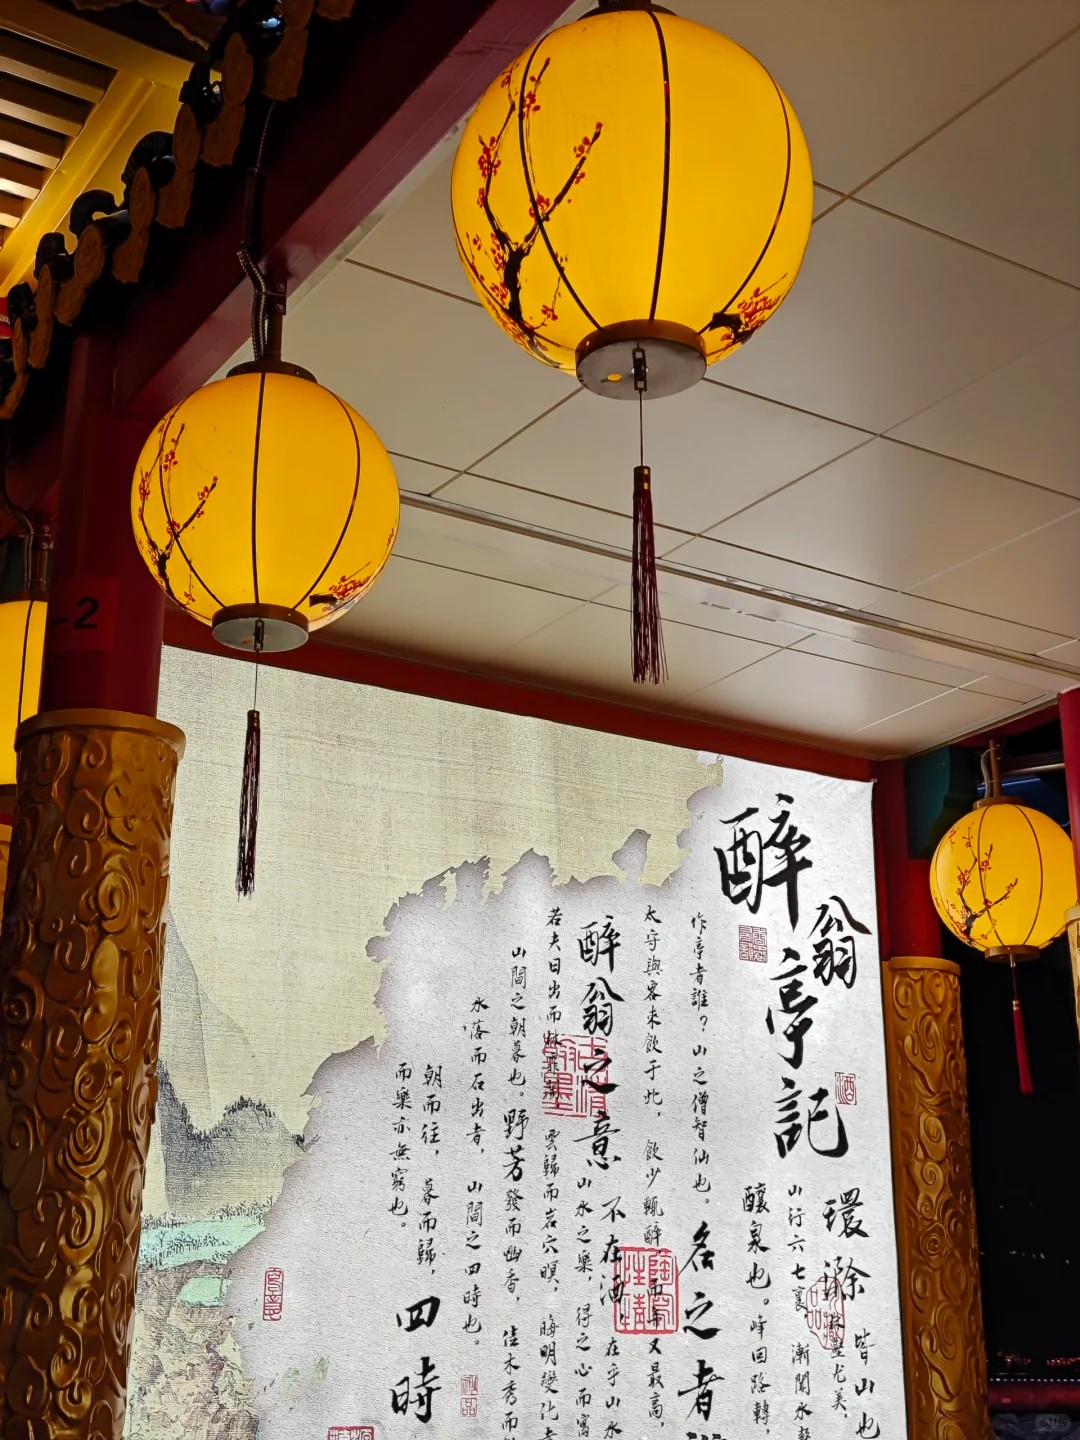 -2
醉翁亭記
環滁皆山也
林壑尤美，
山行六七裏 漸聞水聲
釀泉也。峰回路轉，
作亭者誰？山之僧智仙也。名之者
太守與客來飲于此，飲少輒醉 而年又最高，
醉翁之意不在酒，在乎山水
山水之樂，得之心而寓
若夫日出而林霏開 雲歸而岩穴暝，晦明變化者
山間之朝暮也。野芳發而幽香，佳木秀而
水落而石出者，山間之四時也。
朝而往，暮而歸，四時
而樂亦無窮也。
酒